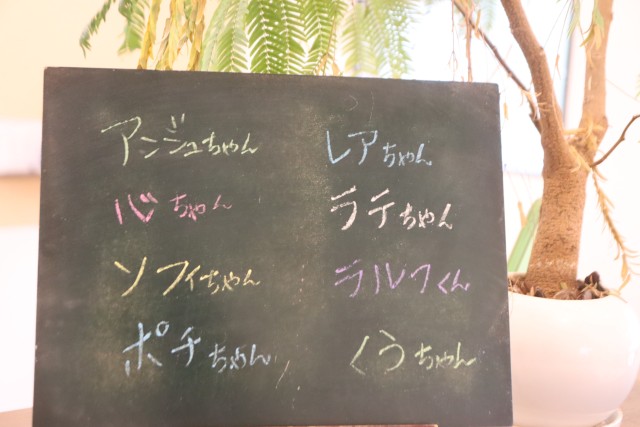 アンジュちゃん
心ちゃん
ソフィちゃん
ポチちゃん
レアちゃん
ラテちゃん
ラルフくん
くうちゃん